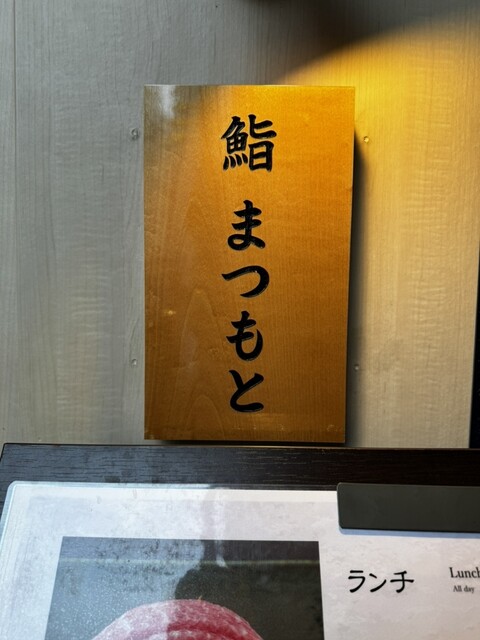 鮨 まつもと
ランチ
Lunch
All day